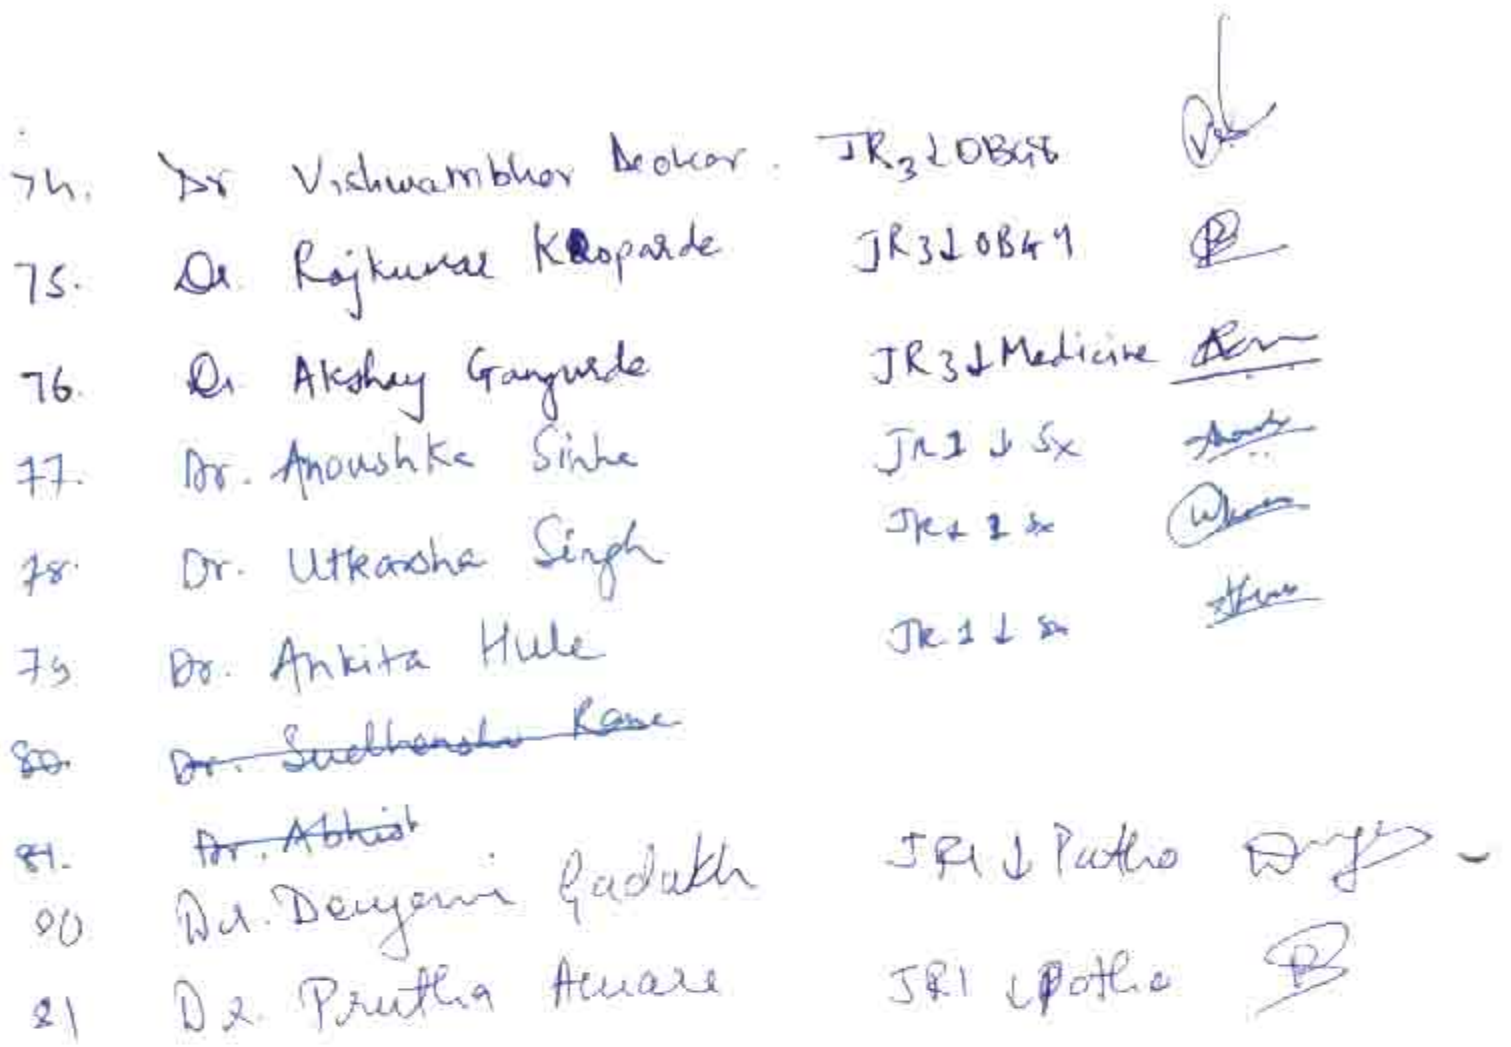 74. Dr Vishwambhar Deokar. JR3 ↓ OBGY
75. Dr. Rajkumar Kloparde JR3 ↓ OBGY
76. Dr Akshay Gangurde JR3 ↓ Medicine
77. Dr. Anoushka Sinha JR1 ↓ Sx
78. Dr. Utkarsha Singh JR1 Sx
79 Dr. Ankita Hule JR1 ↓ Sx
80. Dr. Sudhanshu Rane
81. Dr. Abhist
80 Dr. Devyani Gadakh JR1 ↓ Patho
81 Dr. Prutha Aware JR1 ↓ Patho